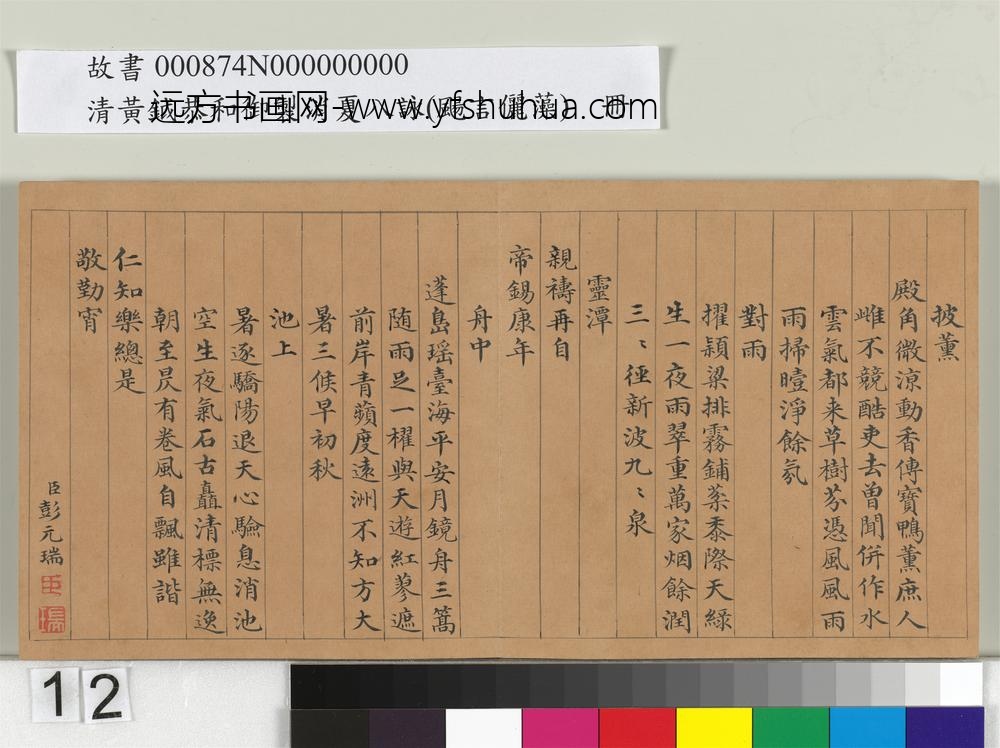 故書 000874N000000000
清黃鉞恭和御製消夏八詠(
远方书画网-www.yfshuhua.com
披薰
殿角微涼動香傳寶鴨薰庶人
雌不競酷吏去曾聞併作水
雲氣都来草樹芬憑風風雨
雨掃曀淨餘氛
對雨
擢穎梁排霧鋪棻黍際天綠
生一夜雨翠重萬家烟餘潤
三〻徑新波九〻泉
靈潭
親禱再自
帝錫康年
舟中
蓬島瑶臺海平安月鏡舟三篙
随雨足一櫂與天遊紅蓼遮
前岸青蘋度遠洲不知方大
暑三候早初秋
池上
暑逐驕陽退天心驗息消池
空生夜氣石古矗清標無逸
朝至昃有卷風自飄雖諧
仁知樂總是
敬勤宵
臣彭元瑞
臣
瑞
12